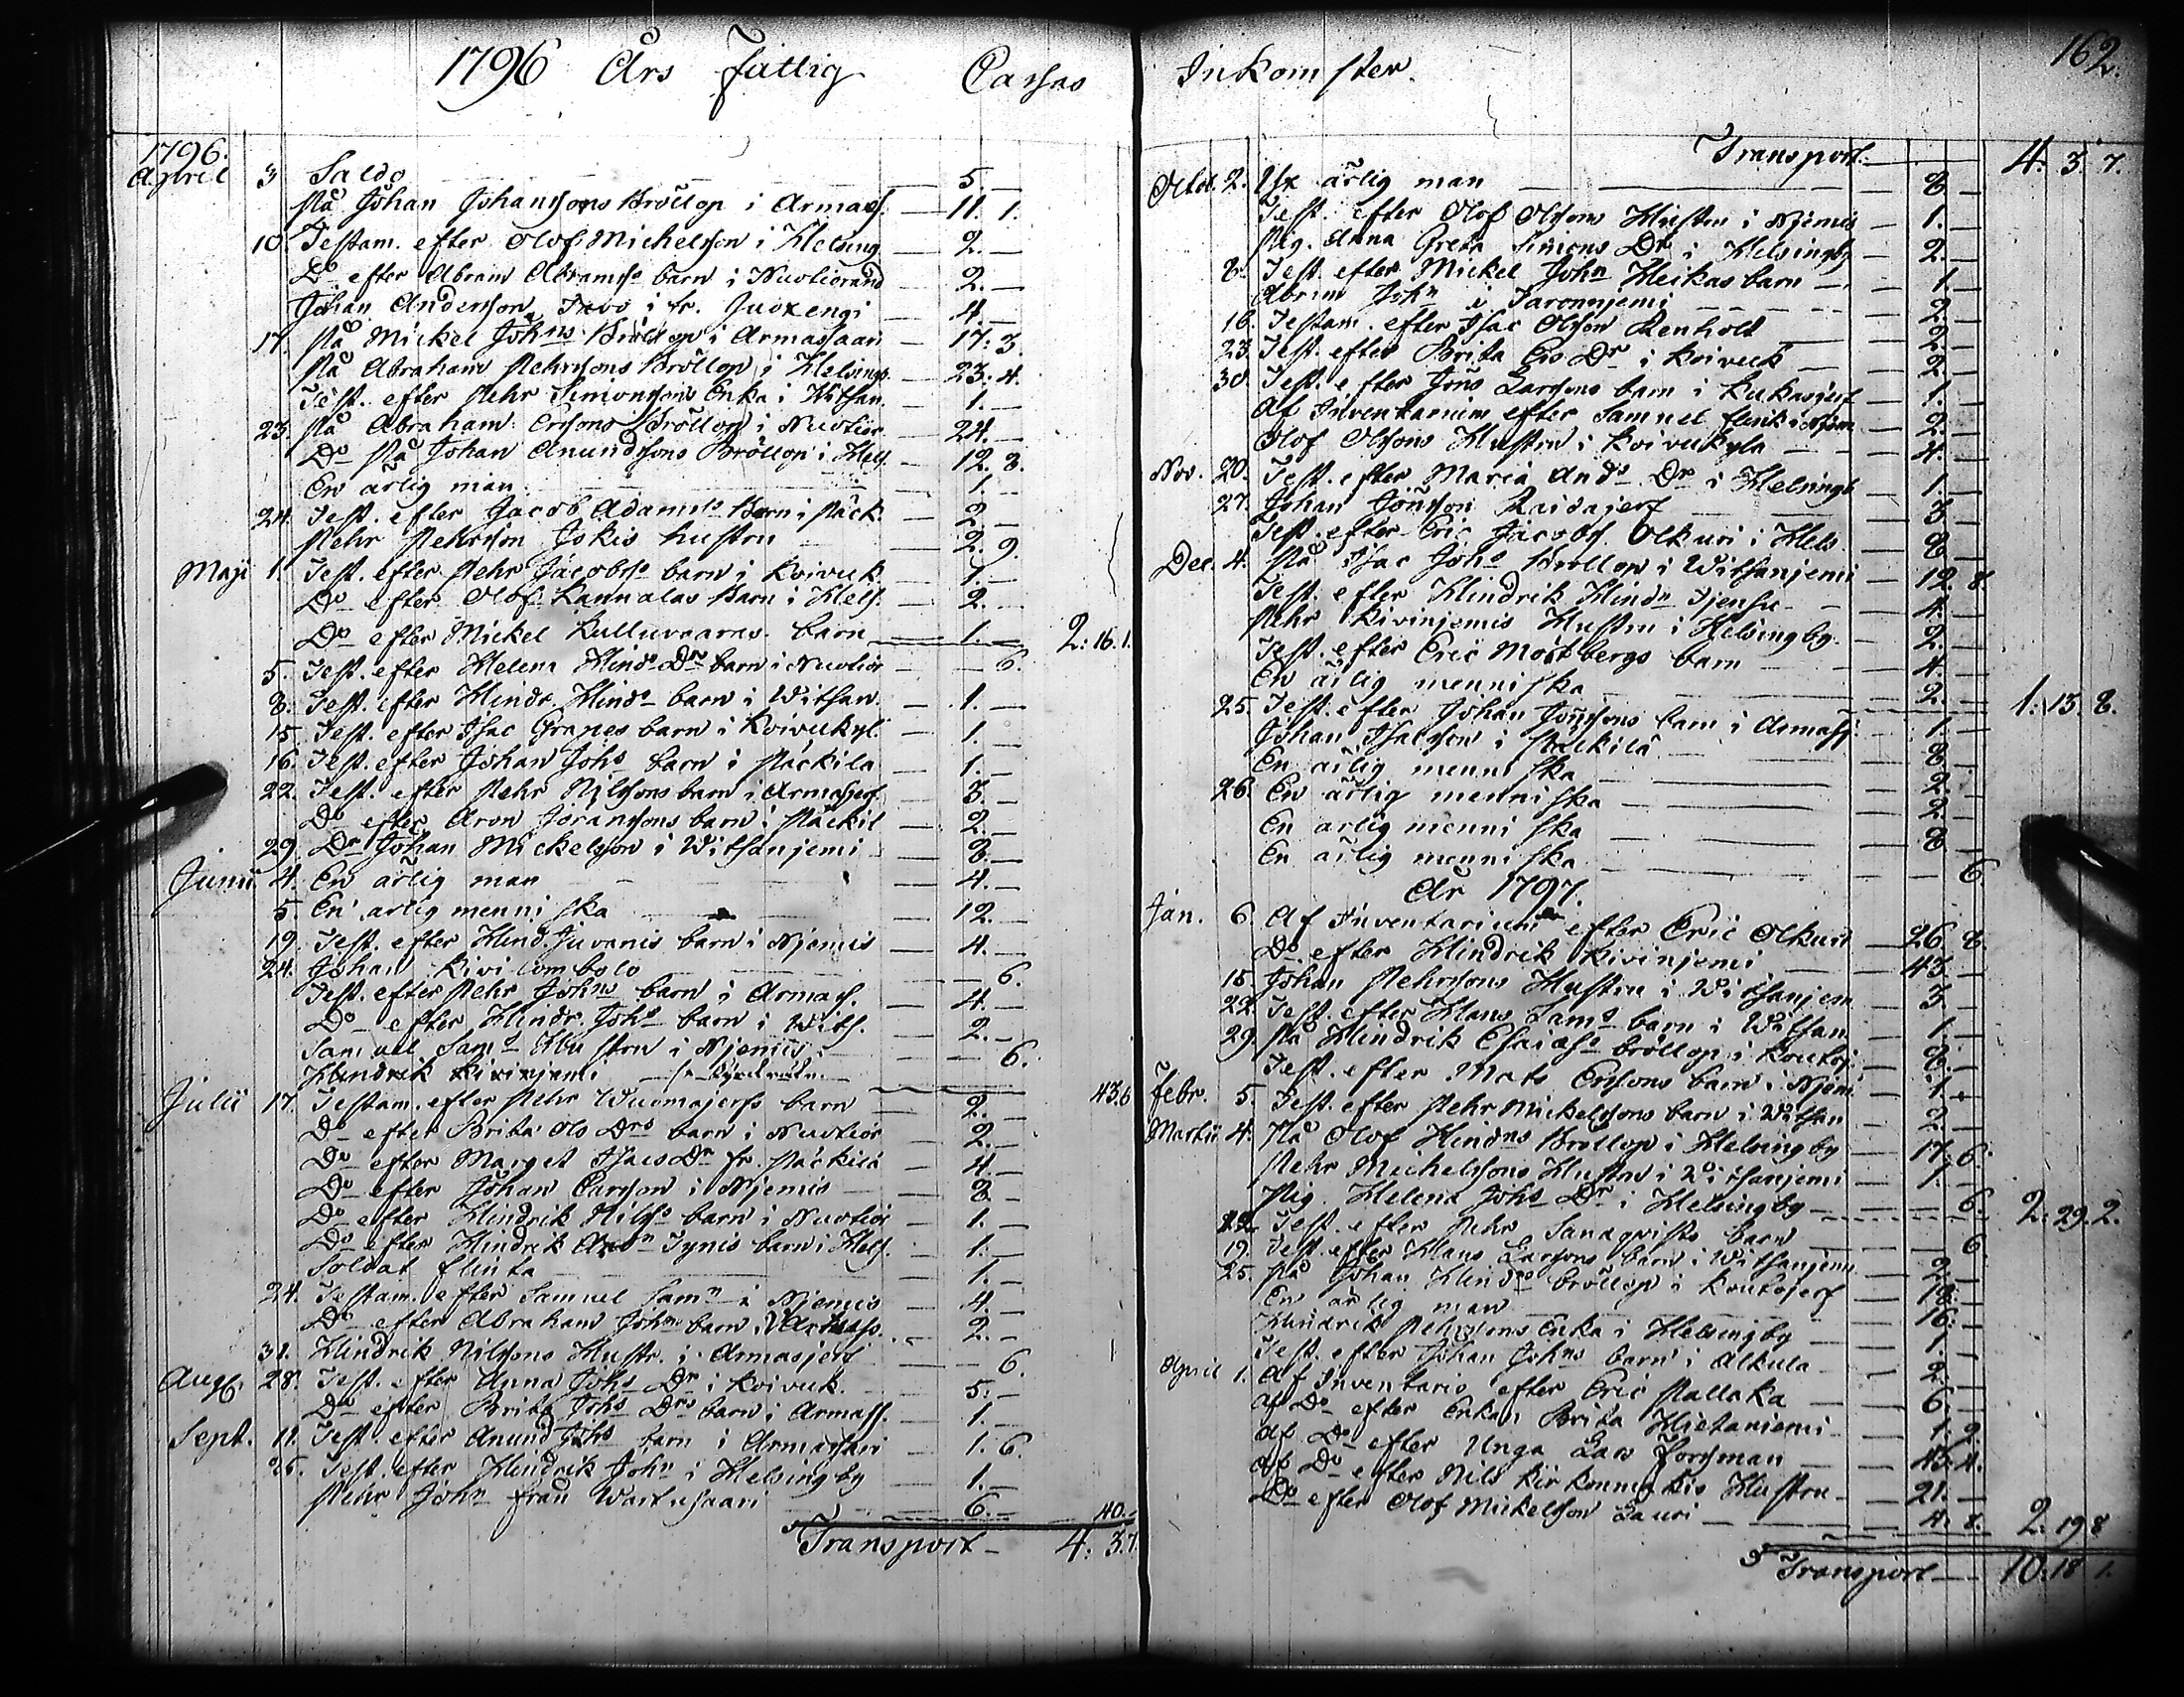 1796 Års Fattig Cassas
1796.
April 3 Saldo — 5. —
på Johan Johanssons Bröllop i Armass. — 11. 1.
10. Testam. efter Olof Michelsson i Helsing — 2. —
Do efter Abram Abramss barn i Nuotiorand — 2. —
Johan Andersson i fr. Juoxengi — 4. —
17. på Mickel Johns Bröllop i Armassaari — 17: 3.
på Abraham Pehrssons Bröllop i Helsingb. — 23: 4.
Test. efter Pehr Simonssons Enka i Witsan. — 1. —
23. på Abraham Erssons Bröllop i Nuotior — 24. —
Do på Johan Anundssons Bröllop i Hels. — 12. 8.
En ärlig man — 1. —
24. Test. efter Jacob Adamss Barn i Päck. — 2. —
Pehr Pehrsson Jokis hustru — 2. 9.
Maji 1. Test. efter Pehr Jacobss barn i Koivuk. — 1. —
Do efter Olof Lannalas Barn i Hels. — 2. —
Do efter Mickel Kulluvaaras barn — 1. — 2: 16. 1.
5. Test. efter Helena Hinds Dr barn i Nuotior — 6.
8. Test. efter Hindr. Hinds barn i Witsan. — 1. —
15. Test. efter Isac Grapes barn i Koivukyl. — 1. —
16. Test. efter Johan Johs barn i Päckila — 1. —
22. Test. efter Pehr Nilssons barn i Armasjerf — 3. —
Do efter Aron Joranssons barn i Päckil — 2. —
29. Dr Johan Mickelsson i Witsanjemi — 8. —
Junii 4. En ärlig man — 4. —
5. En ärlig menniska — 12. —
19. Test. efter Hind. Juvanis barn i Njemis — 4. —
24. Johan Kivilombolo — 6.
Test. efter Pehr Johns barn i Armas. — 4. —
Do efter Hindr. Johs barn i Wits. — 2. —
Samuel Sams Hustru i Njemis — 6.
Hindrik Kivinjemi — 43. 6
Julii 17. Testam. efter Pehr Wuomajerfs barn — 2. —
Do efter Brita Ols Drs barn i Nuotior — 2. —
Do efter Marget Isacs Dr fr. Päckilä — 4. —
Do efter Johan Larsson i Njemis — 8 —
Do efter Hindrik Nilss barn i Nuotior — 1. —
Do efter Hindrik Tynis barn i Hels. — 1. —
Soldat Flinta — 1. —
24. Testam. efter Samuel Samn i Njemis — 4. —
Do efter Abraham Johns barn i — 2. —
31. Hindrik Nilssons Hustr. i Armasjerf — 6.
Aug. 28. Test. efter Anna Johs Dr i Koivuk. — 5. —
Do efter Brita Johs Drs barn i Armass. — 1. —
Sept. 11. Test. efter Anund Johs barn i Armassari — 1. 6.
25. Test. efter Hindrik John i Helsingby — 1. —
Pehr John från Wartusaari — 6. — 40. —
Transport — 4: 3. 7.
Inkomster.
162.
Transport — 4. 3. 7.
Octob. 2. ärlig man — 8 —
Test. efter Olof Olssons Hustru i Njemis — 1. —
Pig. Anna Greta Simons Dr i Helsingby — 2. —
8. Test. efter Mickel John Heikas barn — 1. —
Abram John i Jaronnjemi — 2. —
16. Testam. efter Isac Olsson Renholt — 2. —
23. Test. efter Brita Ers Dr i Koivuk — 2 —
30. Test. efter Jöns Larssons barn i Kukasjerf — 1. —
Af Inventarium efter Samuel i Njem — 2. —
Olof Olssons Hustru i Koivukyla — 4. —
Nov. 20. Test. efter Maria Ands Dr i Helsingb — 1 —
27. Johan Jönsson Raidajerf — 3 —
Test. efter Eric Jacobs. Olkuri i Hels. — 8 —
Dec. 4. På Isac Johs Bröllop i Witsanjemi — 12. 8.
Test. efter Hindrik Hindn — 4. —
Pehr Kivinjemis Hustru i Helsingby. — 2. —
Test. efter Eric Mortbergs barn — 4. —
En ärlig menniska — 2. — 1: 13. 8.
25. Test. efter Johan Jönssons barn i Armass. — 1. —
Johan Isacsson i Päckilä — 8 —
En ärlig menniska — 2. —
26. En ärlig menniska — 2 —
En ärlig menniska — 8 —
En ärlig menniska — 6.
År 1797.
Jan. 6. Af Inventarium efter Eric Olkuri — 26 8.
Do efter Hindrik Kivinjemi — 43 —
15. Johan Pehrssons Hustru i Witsanjem — 3 —
22. Test. efter Hans Sams barn i Witsan — 1 —
29. på Hindrik Esaiæs bröllop i Koutoj. — 8. —
Test. efter Mats Erssons barn i Njem. — 1. —
Febr. 5. Test. efter Pehr Mickelssons barn i Witsan — 2 —
Martii 4. På Olof Hindns Bröllop i Helsingby — 17. 6.
Pehr Michelssons Hustru i Witsanjemi — 1. —
Pig. Helena Johs Dr i Helsingby — 6. 2: 29. 2.
12. Test. efter Pehr Sandqvists barn — 6
19. Test. efter Hans Larssons barn i Witsanjem — 2 —
25. på Johan Hindns bröllop i Koutojerf — 18. —
En ärlig man — 16. —
Hindrik Pehrssons Enka i Helsingby — 1. —
Test. efter Johan Johns barn i Alkula — 2 —
April 1. Af Inventario efter Eric Pallaka — 6. —
af Do efter Enkan Brita Hietaniemi — 1. 9.
af Do efter Unga Lars Forssman — 45. 4.
af Do efter Nils Hustru — 21. —
Do efter Olof Mickelsson Lauri — 4. 8. 2. 19 8
Transport — 10. 18 1.